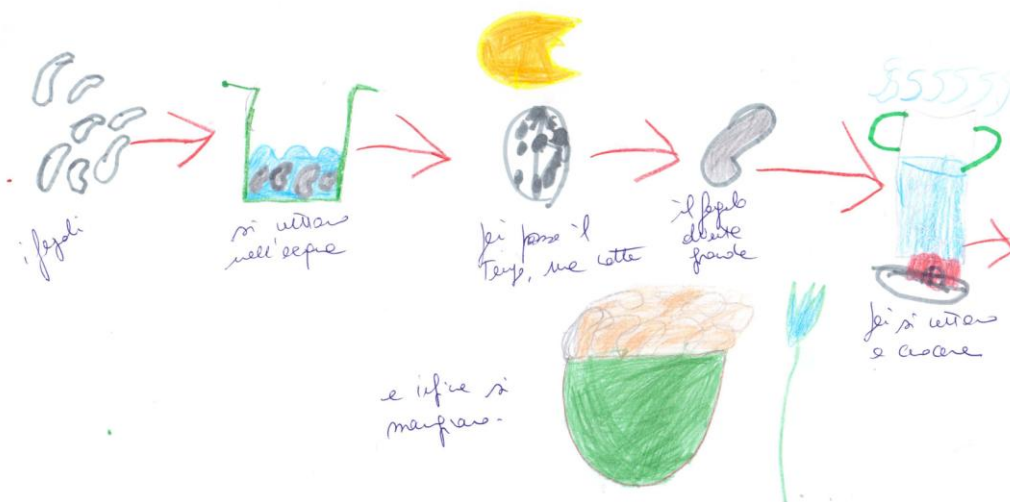 i fagioli
si mettono
nell'acqua
poi passa il
tempo, una notte
il fagiolo
diventa
grande
poi si mettono
a cuocere
e infine si
mangiano.